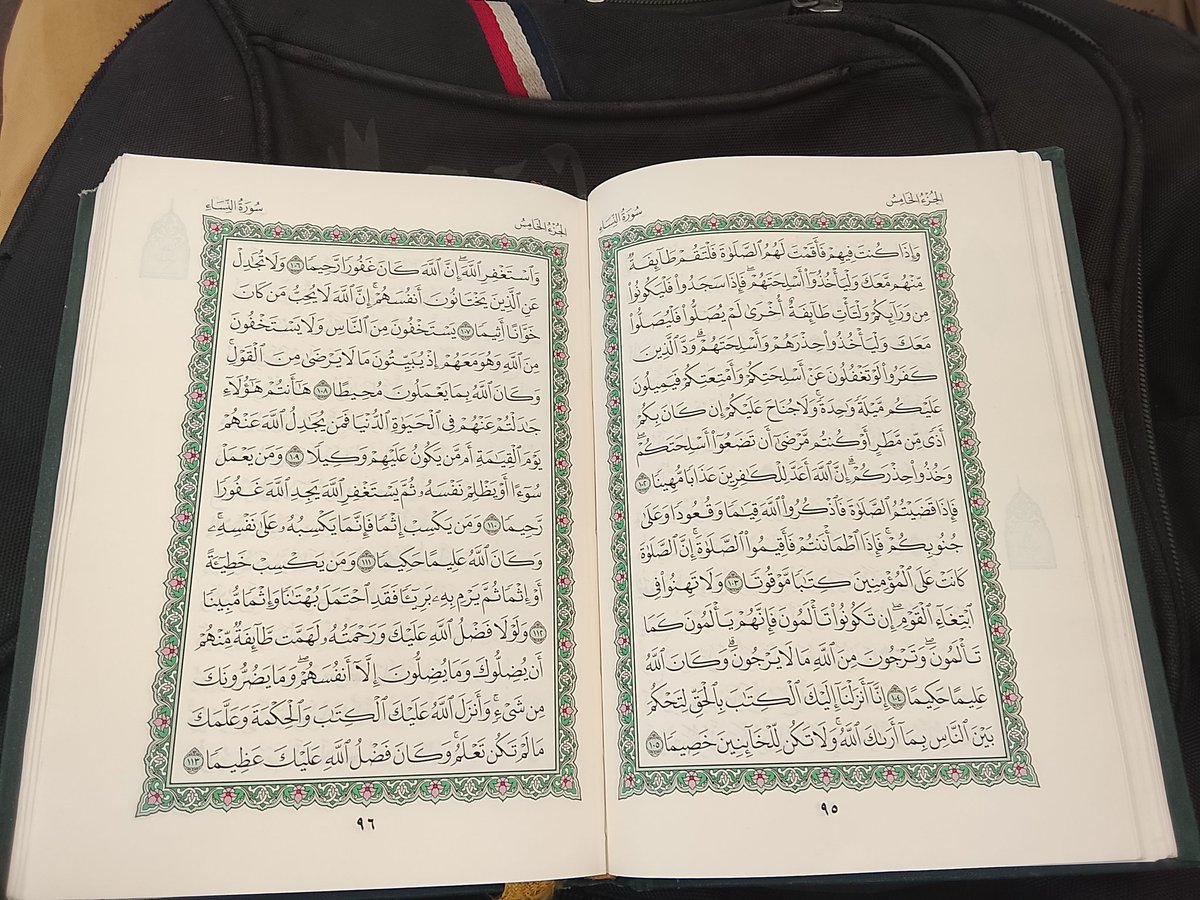 الجزء الخامس
سورة النساء
وَإِذَا كُنتَ فِيهِمْ فَأَقَمْتَ لَهُمُ ٱلصَّلَوٰةَ فَلْتَقُمْ طَآئِفَةٌ
مِّنْهُم مَّعَكَ وَلْيَأْخُذُوٓا۟ أَسْلِحَتَهُمْ ۖ فَإِذَا سَجَدُوا۟ فَلْيَكُونُوا۟
مِن وَرَآئِكُمْ وَلْتَأْتِ طَآئِفَةٌ أُخْرَىٰ لَمْ يُصَلُّوا۟ فَلْيُصَلُّوا۟
مَعَكَ وَلْيَأْخُذُوا۟ حِذْرَهُمْ وَأَسْلِحَتَهُمْ ۗ وَدَّ ٱلَّذِينَ
كَفَرُوا۟ لَوْ تَغْفُلُونَ عَنْ أَسْلِحَتِكُمْ وَأَمْتِعَتِكُمْ فَيَمِيلُونَ
عَلَيْكُم مَّيْلَةً وَٰحِدَةً ۚ وَلَا جُنَاحَ عَلَيْكُمْ إِن كَانَ بِكُمْ
أَذًى مِّن مَّطَرٍ أَوْ كُنتُم مَّرْضَىٰٓ أَن تَضَعُوٓا۟ أَسْلِحَتَكُمْ ۖ
وَخُذُوا۟ حِذْرَكُمْ ۗ إِنَّ ٱللَّهَ أَعَدَّ لِلْكَٰفِرِينَ عَذَابًا مُّهِينًا ١٠٢
فَإِذَا قَضَيْتُمُ ٱلصَّلَوٰةَ فَٱذْكُرُوا۟ ٱللَّهَ قِيَٰمًا وَقُعُودًا وَعَلَىٰ
جُنُوبِكُمْ ۚ فَإِذَا ٱطْمَأْنَنتُمْ فَأَقِيمُوا۟ ٱلصَّلَوٰةَ ۚ إِنَّ ٱلصَّلَوٰةَ
كَانَتْ عَلَى ٱلْمُؤْمِنِينَ كِتَٰبًا مَّوْقُوتًا ١٠٣ وَلَا تَهِنُوا۟ فِى
ٱبْتِغَآءِ ٱلْقَوْمِ ۖ إِن تَكُونُوا۟ تَأْلَمُونَ فَإِنَّهُمْ يَأْلَمُونَ كَمَا
تَأْلَمُونَ ۖ وَتَرْجُونَ مِنَ ٱللَّهِ مَا لَا يَرْجُونَ ۗ وَكَانَ ٱللَّهُ
عَلِيمًا حَكِيمًا ١٠٤ إِنَّآ أَنزَلْنَآ إِلَيْكَ ٱلْكِتَٰبَ بِٱلْحَقِّ لِتَحْكُمَ
بَيْنَ ٱلنَّاسِ بِمَآ أَرَىٰكَ ٱللَّهُ ۚ وَلَا تَكُن لِّلْخَآئِنِينَ خَصِيمًا ١٠٥
٩٥
الجزء الخامس
سورة النساء
وَٱسْتَغْفِرِ ٱللَّهَ ۖ إِنَّ ٱللَّهَ كَانَ غَفُورًا رَّحِيمًا ١٠٦ وَلَا تُجَٰدِلْ
عَنِ ٱلَّذِينَ يَخْتَانُونَ أَنفُسَهُمْ ۚ إِنَّ ٱللَّهَ لَا يُحِبُّ مَن كَانَ
خَوَّانًا أَثِيمًا ١٠٧ يَسْتَخْفُونَ مِنَ ٱلنَّاسِ وَلَا يَسْتَخْفُونَ
مِنَ ٱللَّهِ وَهُوَ مَعَهُمْ إِذْ يُبَيِّتُونَ مَا لَا يَرْضَىٰ مِنَ ٱلْقَوْلِ ۚ
وَكَانَ ٱللَّهُ بِمَا يَعْمَلُونَ مُحِيطًا ١٠٨ هَٰٓأَنتُمْ هَٰٓؤُلَآءِ
جَٰدَلْتُمْ عَنْهُمْ فِى ٱلْحَيَوٰةِ ٱلدُّنْيَا فَمَن يُجَٰدِلُ ٱللَّهَ عَنْهُمْ
يَوْمَ ٱلْقِيَٰمَةِ أَم مَّن يَكُونُ عَلَيْهِمْ وَكِيلًا ١٠٩ وَمَن يَعْمَلْ
سُوٓءًا أَوْ يَظْلِمْ نَفْسَهُۥ ثُمَّ يَسْتَغْفِرِ ٱللَّهَ يَجِدِ ٱللَّهَ غَفُورًا
رَّحِيمًا ١١٠ وَمَن يَكْسِبْ إِثْمًا فَإِنَّمَا يَكْسِبُهُۥ عَلَىٰ نَفْسِهِۦ ۚ
وَكَانَ ٱللَّهُ عَلِيمًا حَكِيمًا ١١١ وَمَن يَكْسِبْ خَطِيٓـَٔةً
أَوْ إِثْمًا ثُمَّ يَرْمِ بِهِۦ بَرِيٓـًٔا فَقَدِ ٱحْتَمَلَ بُهْتَٰنًا وَإِثْمًا مُّبِينًا
١١٢ وَلَوْلَا فَضْلُ ٱللَّهِ عَلَيْكَ وَرَحْمَتُهُۥ لَهَمَّت طَّآئِفَةٌ مِّنْهُمْ
أَن يُضِلُّوكَ وَمَا يُضِلُّونَ إِلَّآ أَنفُسَهُمْ ۖ وَمَا يَضُرُّونَكَ
مِن شَىْءٍ ۚ وَأَنزَلَ ٱللَّهُ عَلَيْكَ ٱلْكِتَٰبَ وَٱلْحِكْمَةَ وَعَلَّمَكَ
مَا لَمْ تَكُن تَعْلَمُ ۚ وَكَانَ فَضْلُ ٱللَّهِ عَلَيْكَ عَظِيمًا ١١٣
٩٦